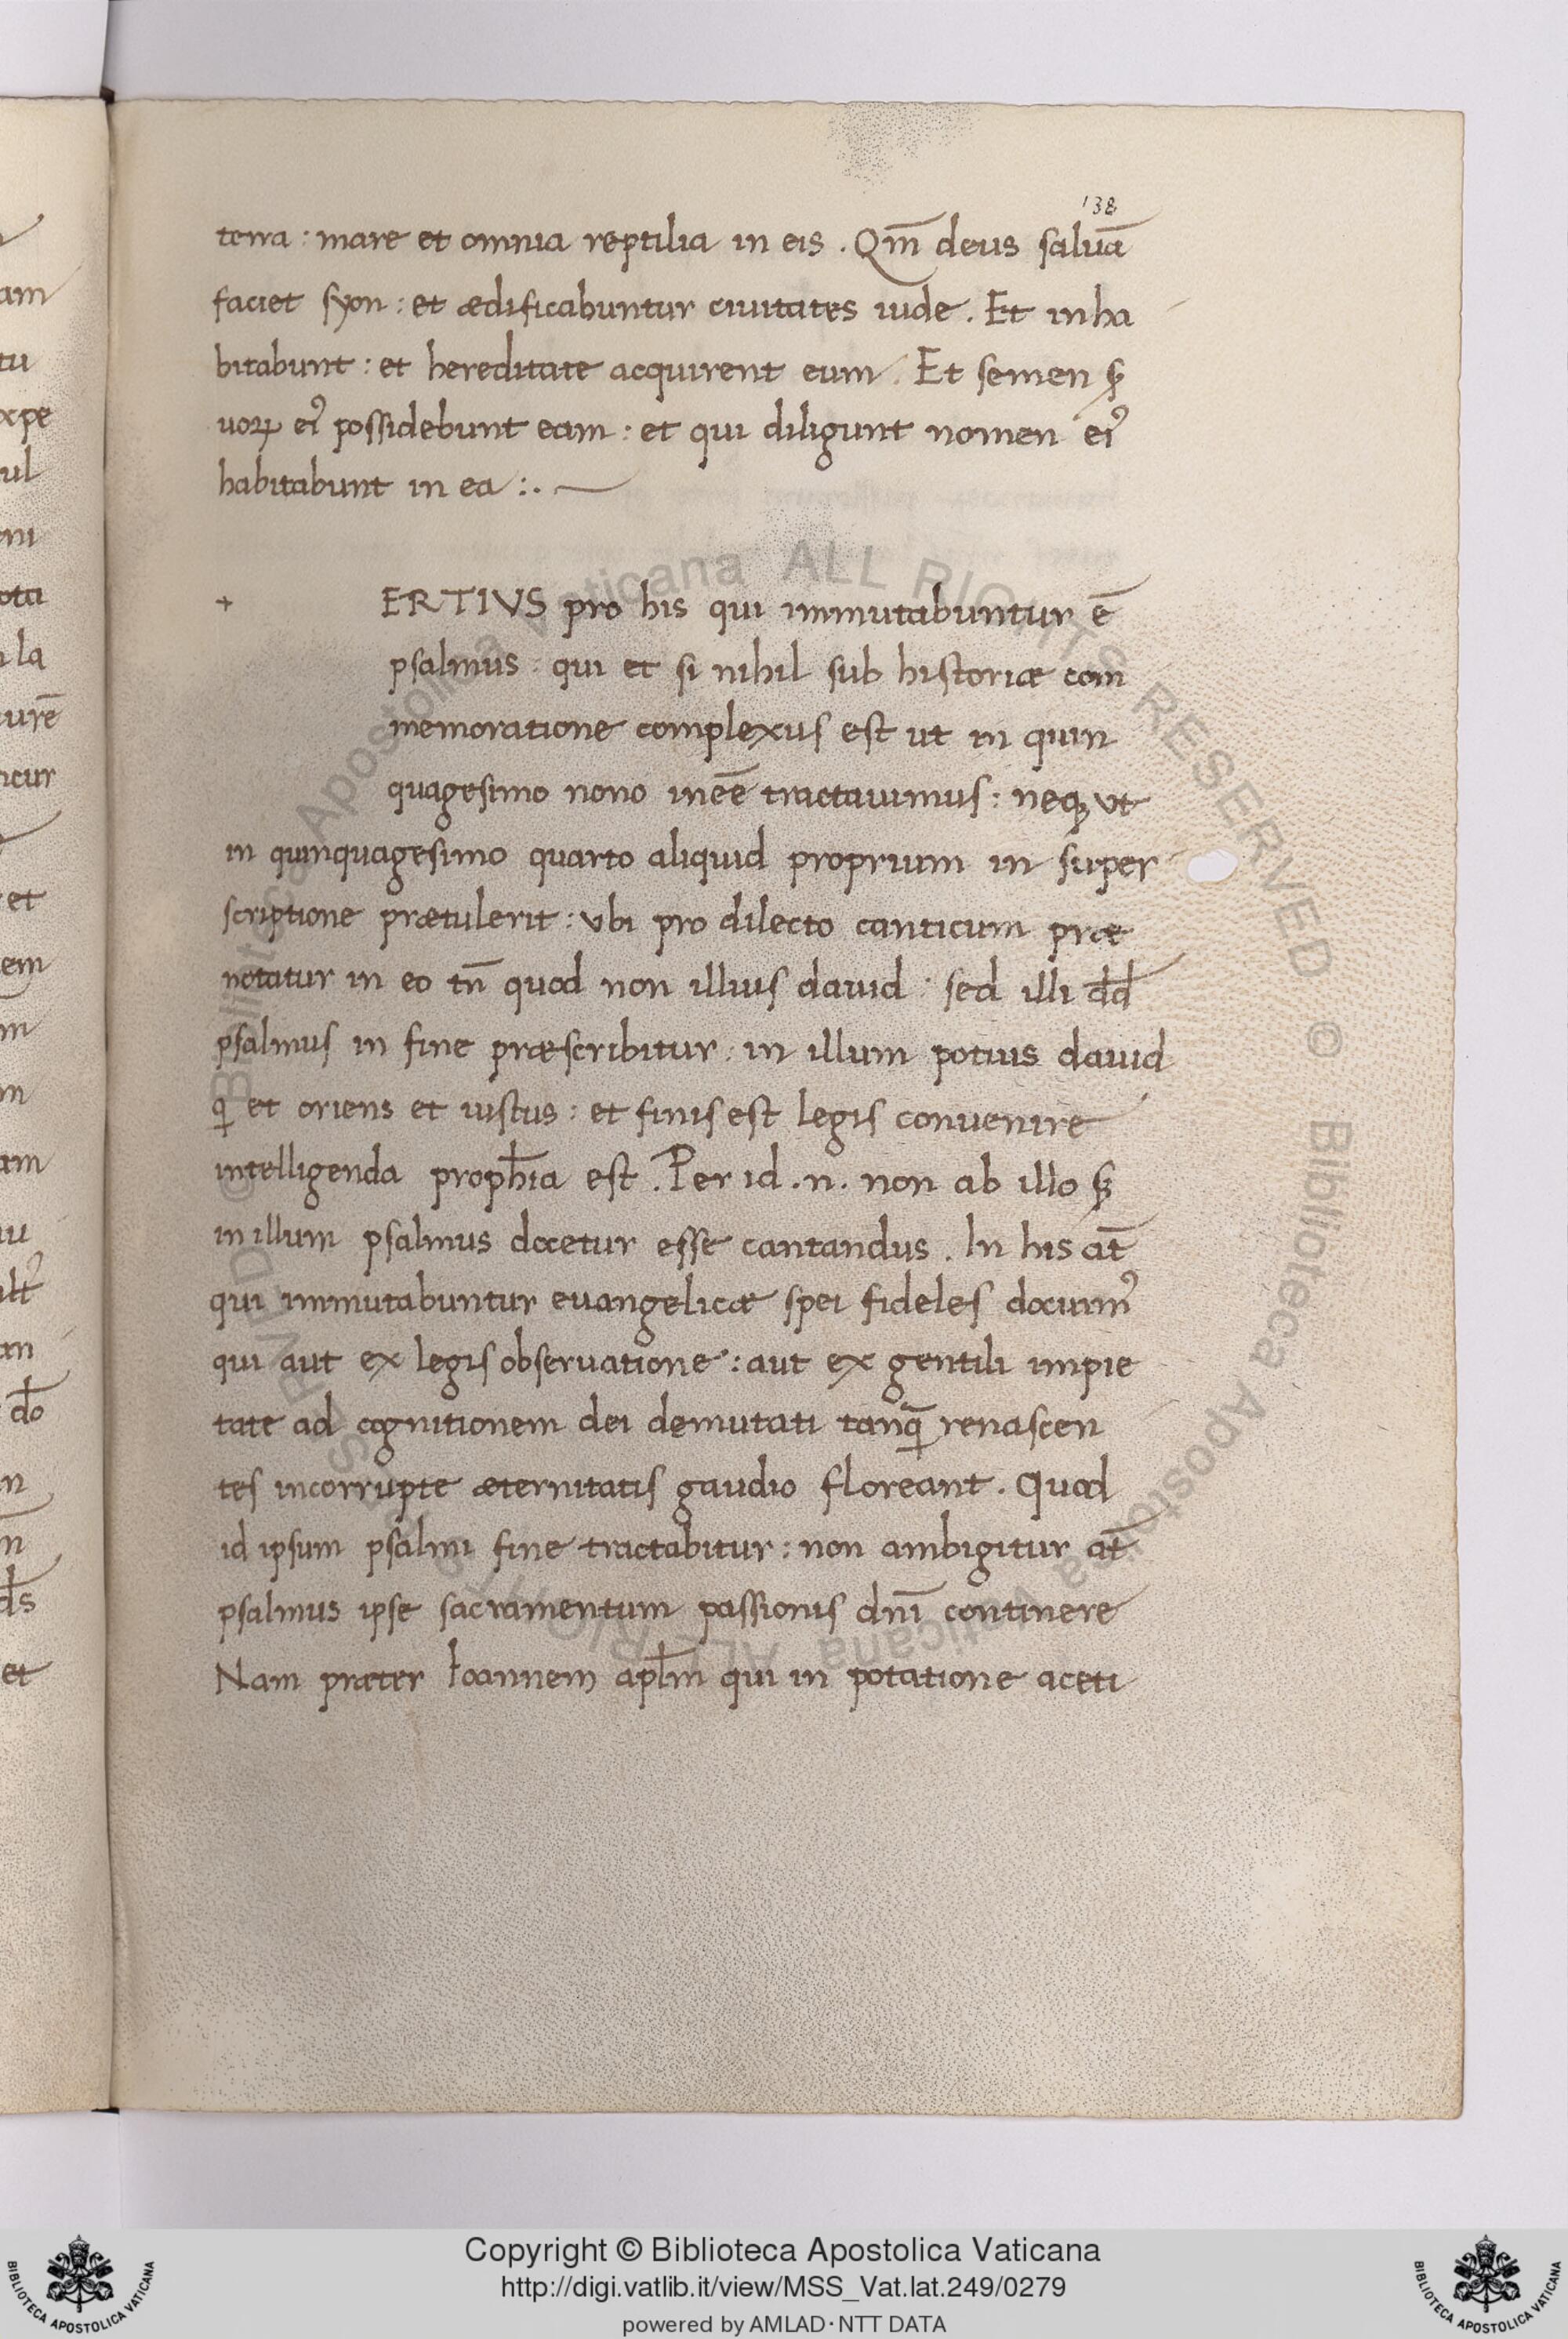 138
terra : mare et omnia reptilia in eis . Qm̅ deus saluā
faciet syon : et ædificabuntur ciuitates iude . Et inha
bitabunt : et hereditate acquirent eum . Et semen ẜ
uoꝝ eiꝰ possidebunt eam : et qui diligunt nomen eiꝰ
habitabunt in ea :.
+ ERTIVS pro his qui immutabuntur ē
psalmus : qui et si nihil sub historiæ com
memoratione complexus est ut in quin
quagesimo nono inēē tractauimus : neqꝫ ut
in quinquagesimo quarto aliquid proprium in super
scriptione prætulerit : ubi pro dilecto canticum præ
notatur in eo tn̄ quod non illius dauid : sed illi dd̄
psalmus in fine præscribitur : in illum potius dauid
ꝗ et oriens et iustus : et finis est legis conuenire
intelligenda proph̄ia est . Per id .n. non ab illo ẜ
in illum psalmus docetur esse cantandus . In his at̄
qui immutabuntur euangelicæ spei fideles docuimꝰ
qui aut ex legis obseruatione : aut ex gentili impie
tate ad cognitionem dei demutati tanꝗ̄ renascen
tes incorrupte æternitatis gaudio floreant . Quod
id ipsum psalmi fine tractabitur : non ambigitur at̄
psalmus ipse sacramentum passionis dn̄i continere
Nam præter Ioannem apl̄m qui in potatione aceti
Copyright © Biblioteca Apostolica Vaticana
http://digi.vatlib.it/view/MSS_Vat.lat.249/0279
powered by AMLAD·NTT DATA